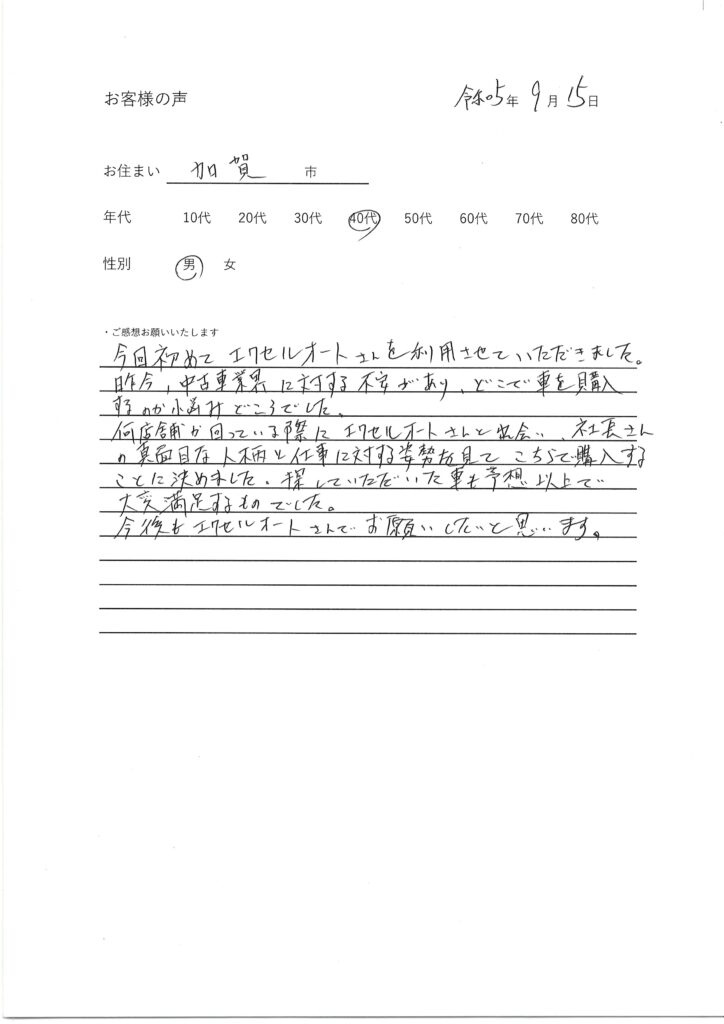 お客様の声 令和5年 9月 15日
お住まい 加賀 市
年代 10代 20代 30代 40代 50代 60代 70代 80代
性別 男 女
・ご感想お願いいたします
今回初めて エクセルオートさんを利用させていただきました。
昨今、中古車業界に対する不安があり、どこで車を購入
するのか悩みどころでした。
何店舗か回っている際にエクセルオートさんと出会い、社長さん
の真面目な人柄と仕事に対する姿勢を見て こちらで購入する
ことに決めました。探していただいた車も予想以上で
大変満足するものでした。
今後もエクセルオートさんでお願いしたいと思います。